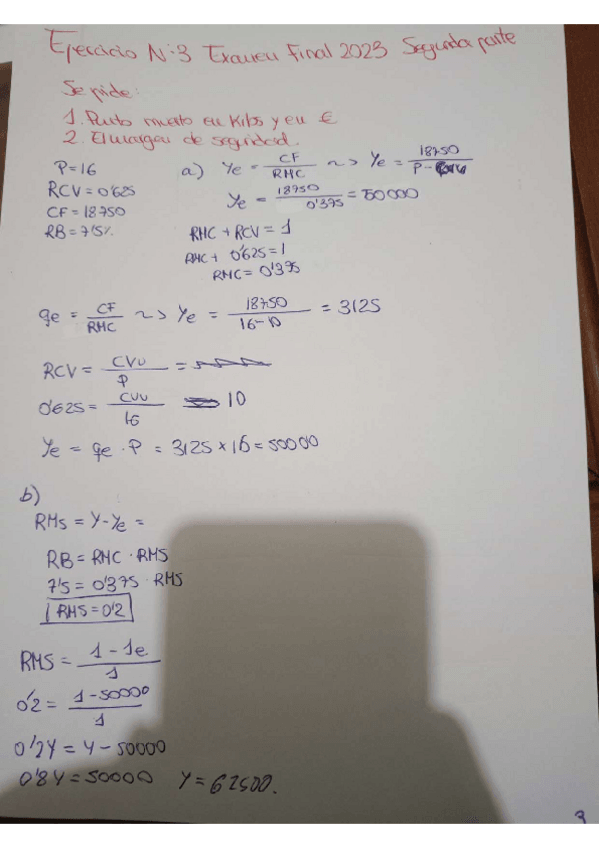 Ejercicio N:3 Examen Final 2023 Segunda parte
Se pide:
1. Punto muerto en Kilos y en €
2. El margen de seguridad.
P=16
RCV=0'625
CF=18750
RB=7'5%
a) Ye = CF / RMC ~> Ye = 18750 / P-
Ye = 18750 / 0'375 = 50000
RMC + RCV = 1
RMC + 0'625 = 1
RMC = 0'375
qe = CF / RMC ~> Ye = 18750 / 16-10 = 3125
RCV = CVU / P =
0'625 = CVU / 16 10
Ye = qe · P = 3125 x 16 = 50000
b)
RMS = Y-Ye =
RB = RMC · RMS
7'5 = 0'375 · RMS
RMS = 0'2
RMS = 1-1e / 1
0'2 = 1-50000 / 1
0'2Y = Y - 50000
0'8Y = 50000 Y = 62500.
3